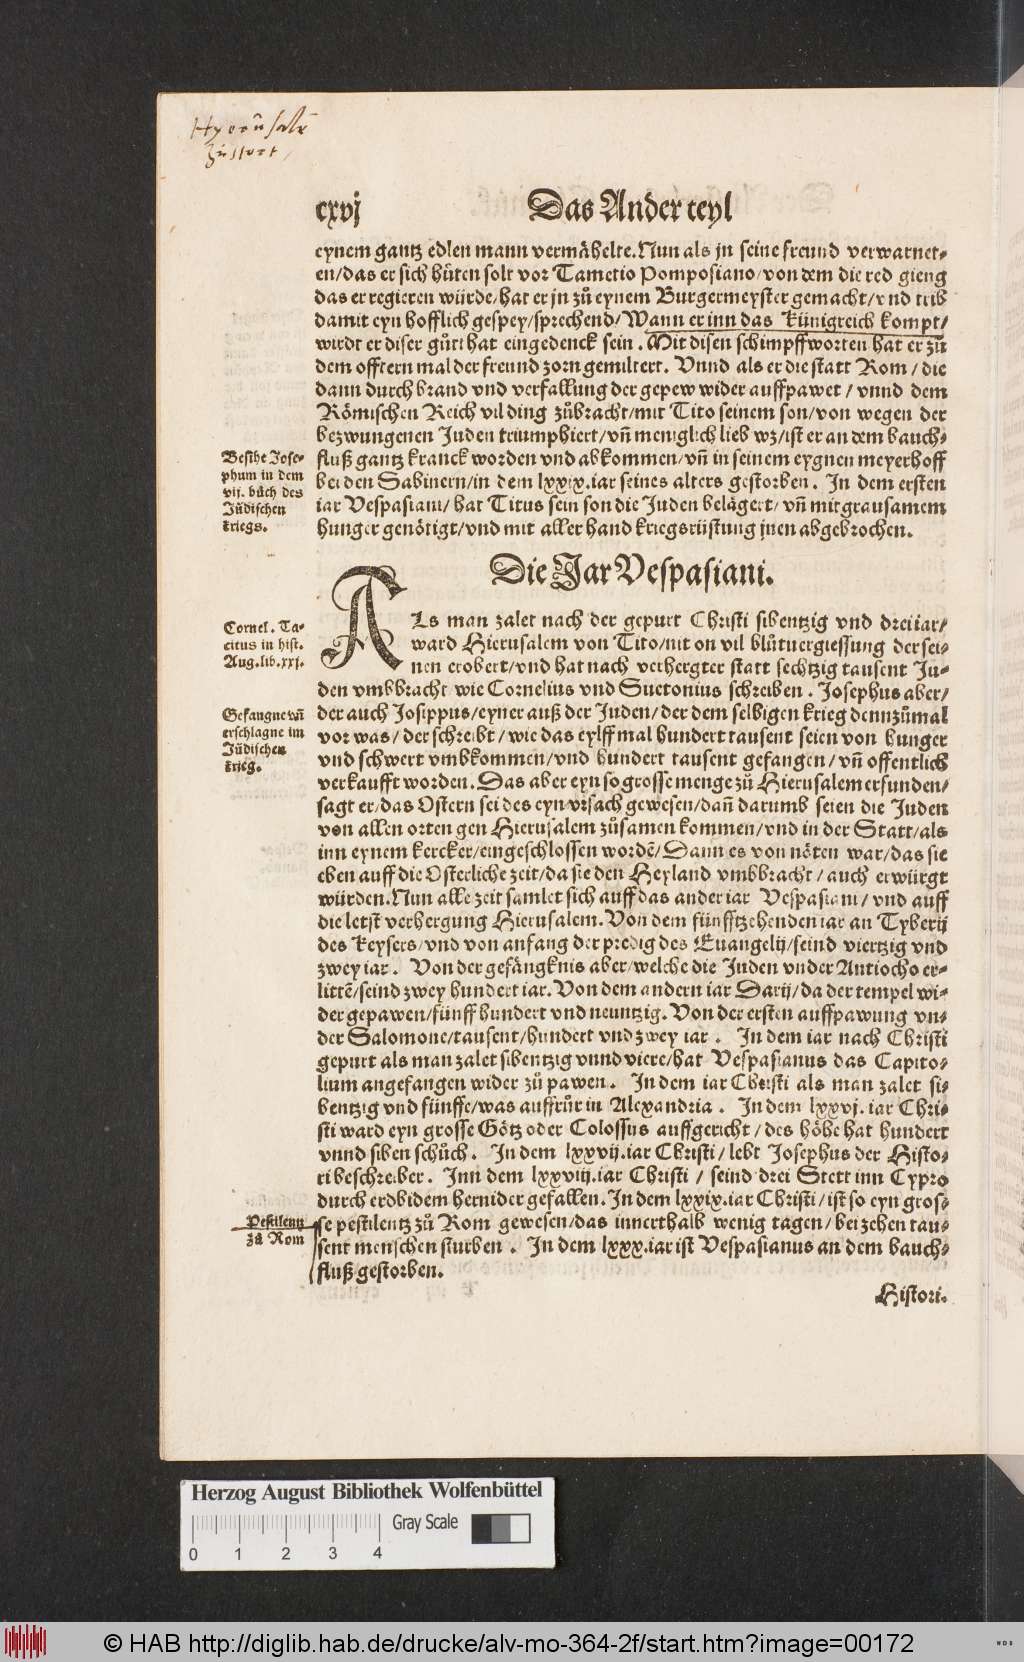 Hyerusale
Zustort
cxvj
Das Ander teyl
eynem gantz edlen mann vermåhelte. Nun als jn seine freund verwarnet-
en/das er sich hůten solt vor Tametio Pomposiano/von dem die red gieng
das er regieren würde/hat er jn zů eynem Burgermeyster gemacht/vnd trib
damit eyn hofflich gespey/sprechend/Wann er inn das künigreich kompt/
wirdt er diser gůti hat eingedenck sein. Mit disen schimpffworten hat er zů
dem offtern mal der freund zorn gemiltert. Vnnd als er die statt Rom/die
dann durch brand vnd verfallung der gepew wider auffpawet/vnnd dem
Römischen Reich vil ding zůbracht/mit Tito seinem son/von wegen der
bezwungenen Juden triumphiert/vñ meniglich lieb wz/ist er an dem bauch-
fluß gantz kranck worden vnd abkommen/vñ in seinem eygnen meyerhoff
bei den Sabinern/in dem lxxix.iar seines alters gestorben. In dem ersten
iar Vespasiani/hat Titus sein son die Juden belägert/vñ mit grausamem
hunger genötigt/vnd mit aller hand kriegsrüstung jnen abgebrochen.
Besihe Jose-
phum in dem
vij. bůch des
Jüdischen
kriegs.
Die Jar Vespasiani.
ALs man zalet nach der gepurt Christi sibentzig vnd drei iar/
ward Hierusalem von Tito/nit on vil blůtuergiessung der sei-
nen erobert/vnd hat nach verhergter statt sechtzig tausent Ju-
den vmbbracht/wie Cornelius vnd Suetonius schreiben. Josephus aber/
der auch Josippus/eyner auß der Juden/der dem selbigen krieg dennzůmal
vor was/der schreibt/wie das eylff mal hundert tausent seien von hunger
vnd schwert vmbkommen/vnd hundert tausent gefangen/vñ offentlich
verkaufft worden. Das aber eyn so grosse menge zů Hierusalem erfunden/
sagt er/das Ostern sei des eyn vrsach gewesen/dañ darumb seien die Juden
von allen orten gen Hierusalem zůsamen kommen/vnd in der Statt/als
inn eynem kercker/eingeschlossen wordē/Dann es von nöten war/das sie
eben auff die Osterliche zeit/da sie den Heyland vmbbracht/auch erwürgt
würden. Nun alle zeit samlet sich auff das ander iar Vespasiani/vnd auff
die letst verhergung Hierusalem. Von dem fünfftzehenden iar an Tyberij
des Keysers/vnd von anfang der predig des Euangelij/seind viertzig vnd
zwey iar. Von der gefångknis aber/welche die Juden vnder Antiocho er-
littē/seind zwey hundert iar. Von dem andern iar Darij/da der tempel wi-
der gepawen/fünff hundert vnd neuntzig. Von der ersten auffpawung vn-
der Salomone/tausent/hundert vnd zwey iar. In dem iar nach Christi
gepurt als man zalet sibentzig vnnd viere/hat Vespasianus das Capito-
lium angefangen wider zů pawen. In dem iar Christi als man zalet si-
bentzig vnd fünffe/was auffrůr in Alexandria. In dem lxxvj.iar Chri-
sti ward eyn grosse Götz oder Colossus auffgericht/des höhe hat hundert
vnnd siben schůch. In dem lxxvij.iar Christi/lebt Josephus der Histo-
ri beschreiber. Inn dem lxxviij.iar Christi/seind drei Stett inn Cypro
durch erdbidem hernider gefallen. In dem lxxix.iar Christi/ist so eyn gros-
se pestilentz zů Rom gewesen/das innerthalb wenig tagen/bei zehen tau-
sent menschen sturben. In dem lxxx.iar ist Vespasianus an dem bauch-
fluß gestorben.
Cornel. Ta-
citus in hist.
Aug.lib.xxj.
Gefangne vñ
erschlagne im
Jüdischen
krieg.
Pestilentz
zů Rom
Histori.
Herzog August Bibliothek Wolfenbüttel
Gray Scale
0 1 2 3 4
© HAB http://diglib.hab.de/drucke/alv-mo-364-2f/start.htm?image=00172